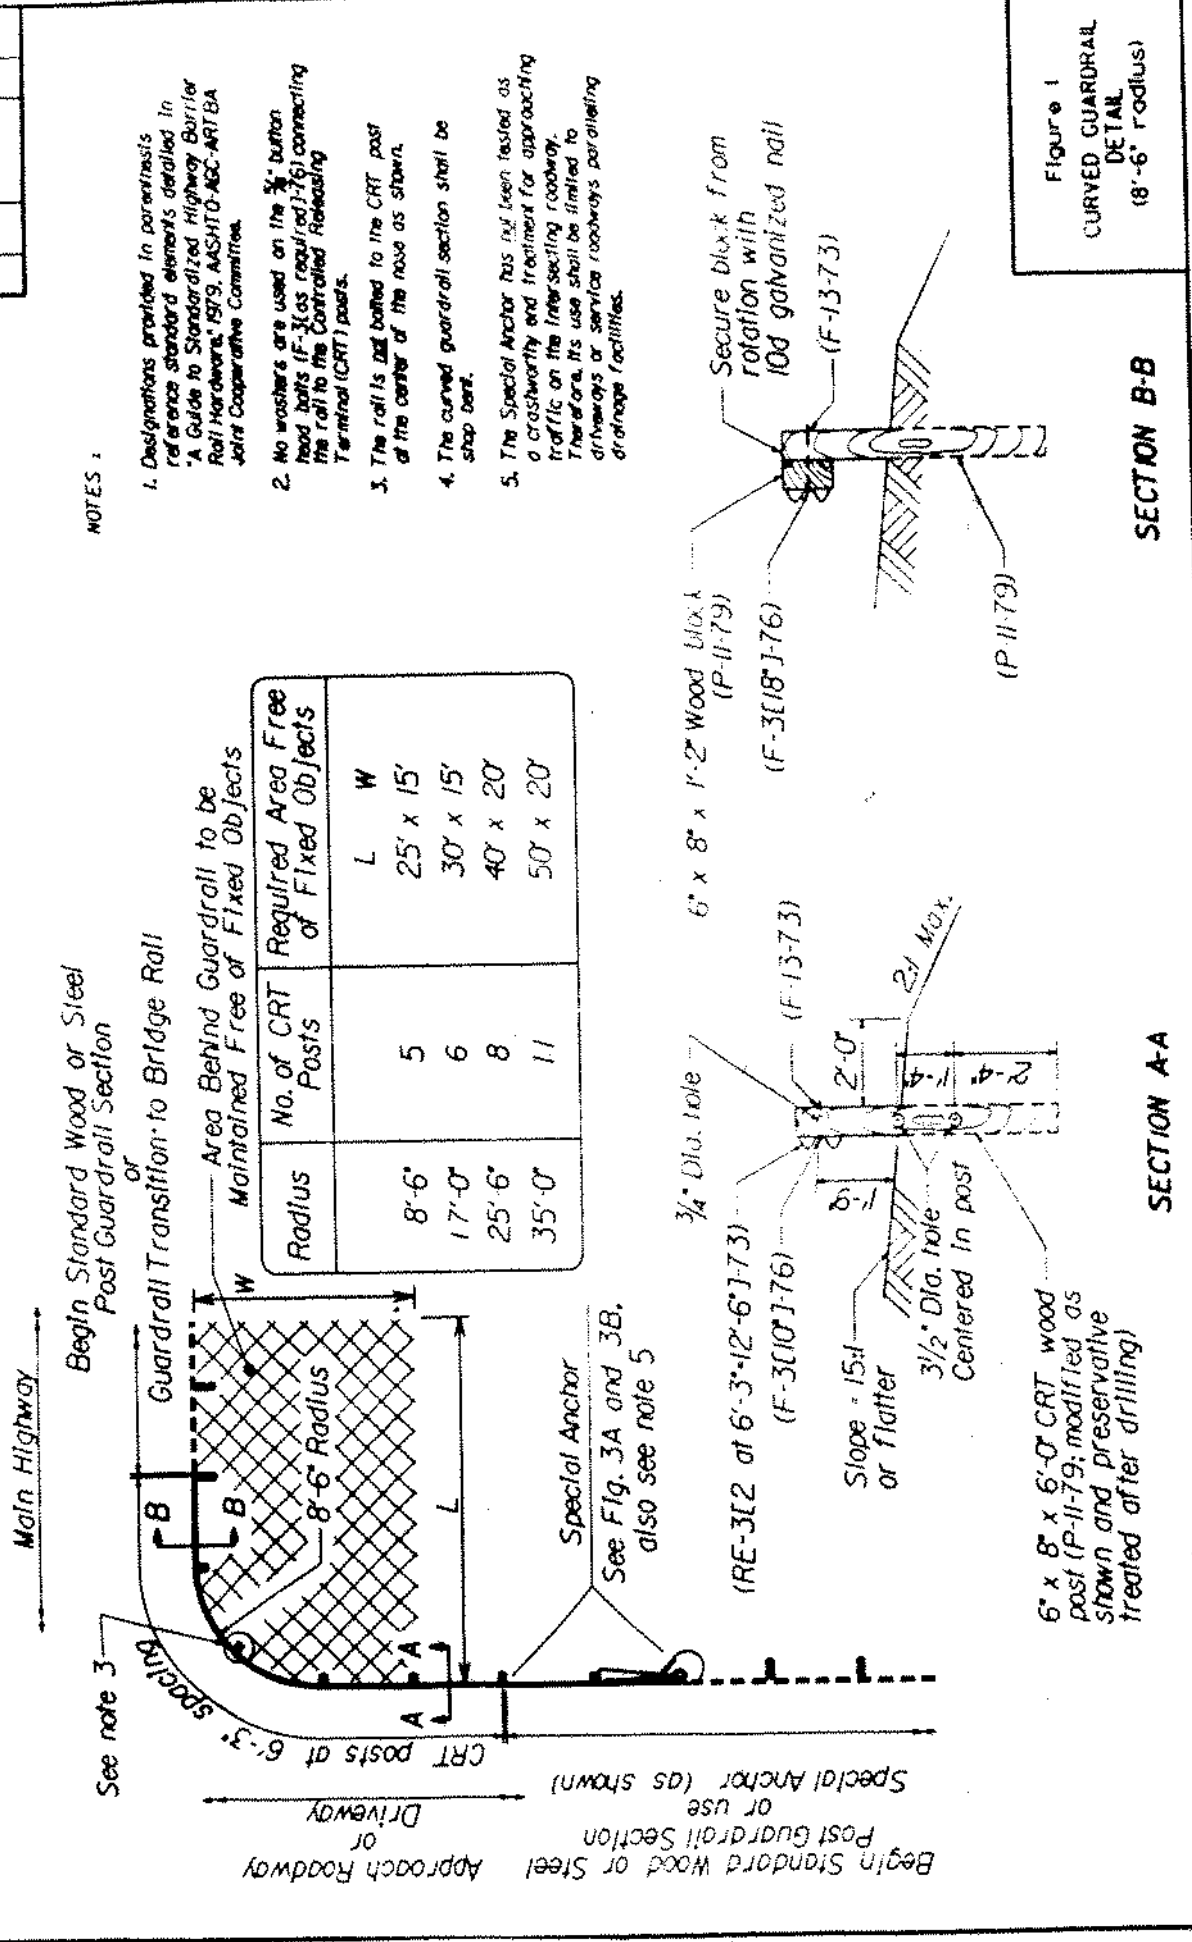 Main Highway
See note 3
Begin Standard Wood or Steel
Post Guardrail Section
or
Guardrail Transition to Bridge Rail
Area Behind Guardrail to be
Maintained Free of Fixed Objects
B
B
W
8'-6" Radius
L
A
A
CRT posts at 6'-3" spacing
Approach Roadway
or
Driveway
Begin Standard Wood or Steel
Post Guardrail Section
or use
Special Anchor (as shown)
Special Anchor
See Fig. 3A and 3B,
also see note 5
Radius
No. of CRT
Posts
Required Area Free
of Fixed Objects
L W
8'-6" 5 25' x 15'
17'-0" 6 30' x 15'
25'-6" 8 40' x 20'
35'-0" 11 50' x 20'
NOTES :
1. Designations provided in parenthesis
reference standard elements detailed in
"A Guide to Standardized Highway Barrier
Rail Hardware," 1979, AASHTO-AGC-ARTBA
Joint Cooperative Committee.
2. No washers are used on the 5/8" button
head bolts (F-3[as required]-76) connecting
the rail to the Controlled Releasing
Terminal (CRT) posts.
3. The rail is not bolted to the CRT post
at the center of the nose as shown.
4. The curved guardrail section shall be
shop bent.
5. The Special Anchor has not been tested as
a crashworthy end treatment for approaching
traffic on the intersecting roadway.
Therefore, its use shall be limited to
driveways or service roadways paralleling
drainage facilities.
(RE-3[2 at 6'-3"=12'-6"]-73)
(F-3[10"]-76)
3/4" Dia. hole
(F-13-73)
Slope = 15:1
or flatter
1'-9"
2'-0"
2:1 Max.
1'-4"
2'-4"
3 1/2" Dia. hole
Centered in post
6" x 8" x 6'-0" CRT wood
post (P-11-79; modified as
shown and preservative
treated after drilling)
SECTION A-A
6" x 8" x 1'-2" Wood block
(P-11-79)
(F-3[18"]-76)
Secure block from
rotation with
10d galvanized nail
(F-13-73)
(P-11-79)
SECTION B-B
Figure 1
CURVED GUARDRAIL
DETAIL
(8'-6" radius)